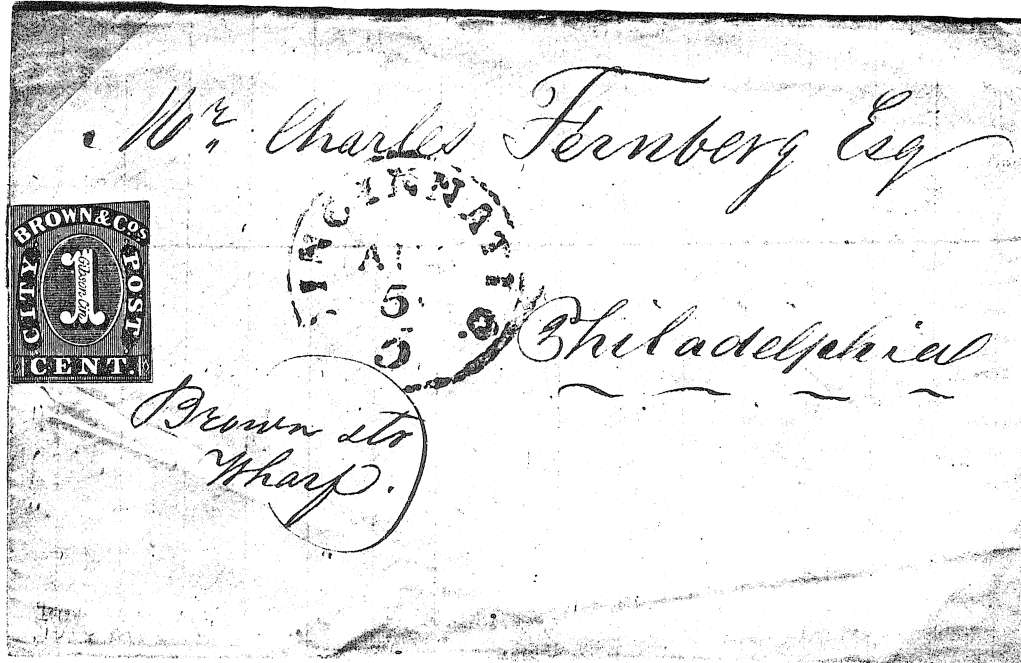 Mr. Charles Fernberg Esq
BROWN & COS
CITY POST.
1
CENT.
CINCINNATI O.
5
5
Philadelphia
Brown str
Wharf.